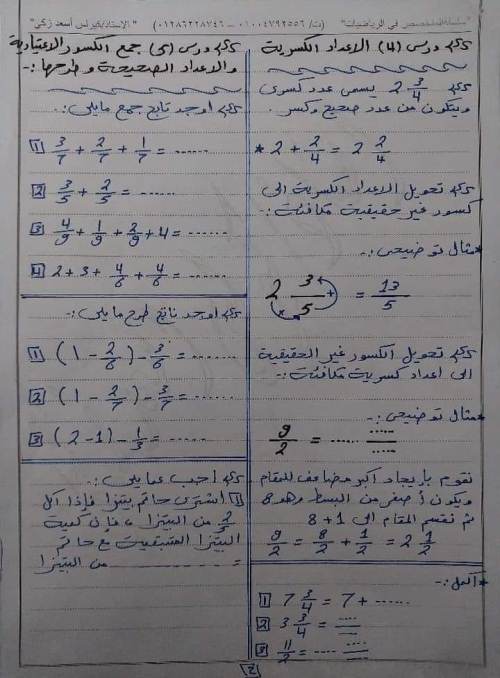 "سلسلة المتخصص في الرياضيات" (ت/ ٠١٠٠٤٧٩٢٥٥٦ - ٠١٢٨٦٢٢٨٧٤٦) "الاستاذ/كيرلس أسعد زكي"
درس (4) الاعداد الكسرية
2 3/4 يسمى عدد كسرى
ويتكون من عدد صحيح وكسر.
* 2 + 2/4 = 2 2/4
تحويل الاعداد الكسرية الى
كسور غير حقيقية مكافئة :-
* مثال توضيحى :-
2 3/5 = 13/5
تحويل الكسور غير الحقيقية
الى اعداد كسرية مكافئة :-
* مثال توضيحى :-
9/2 = ..... ...../.....
نقوم بإيجاد اكبر مضاعف للمقام
ويكون أصغر من البسط وهو 8
ثم نقسم المقام الى 1 + 8
9/2 = 8/2 + 1/2 = 2 1/2
* اكمل :-
1 7 3/4 = 7 + ......
2 3 3/4 = ..../....
3 11/2 = .... ..../....
درس (5) جمع الكسور الاعتيادية
والاعداد الصحيحة وطرحها :-
اوجد ناتج جمع مايلى :-
1 3/7 + 2/7 + 1/7 = ......
2 3/5 + 2/5 = ......
3 4/9 + 1/9 + 2/9 + 4 = ......
4 2 + 3 + 4/8 + 4/8 = ......
اوجد ناتج طرح مايلى :-
1 (1 - 2/8) - 3/8 = ......
2 (1 - 2/7) - 3/7 = ......
3 (2 - 1) - 1/3 = ......
اجب عما يلى :-
1 اشترى حاتم بيتزا فإذا اكل
من البيتزا ، فإن كمية
البيتزا المتبقية مع حاتم
= ........ من البيتزا
2